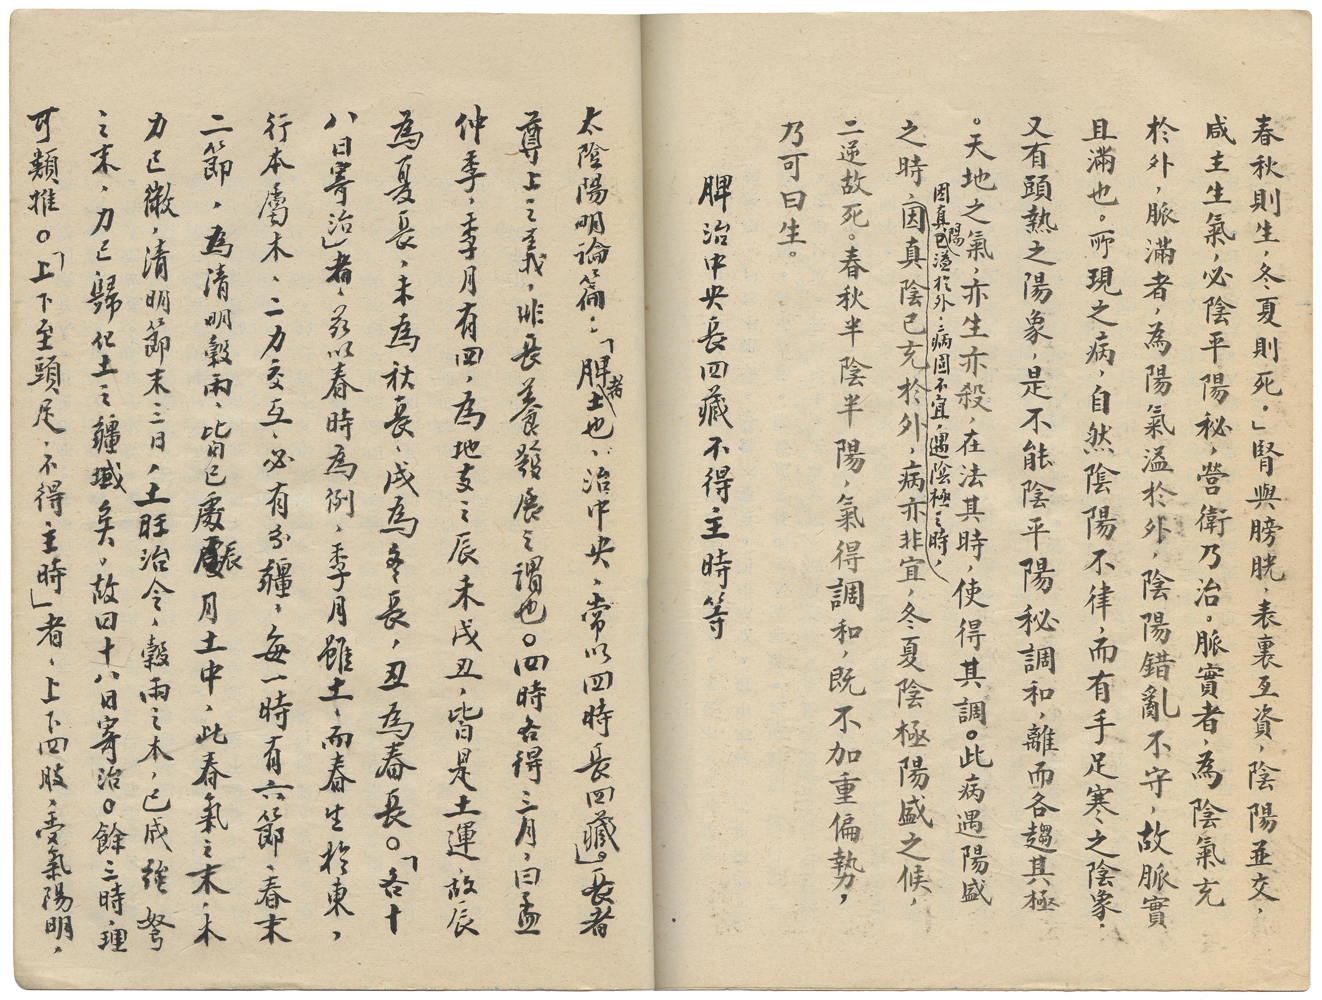 春秋則生，冬夏則死。」腎與膀胱，表裏互資，陰陽並交，
咸主生氣，必陰平陽秘，營衛乃治。脈實者，為陰氣充
於外，脈滿者，為陽氣溢於外，陰陽錯亂不守，故脈實
且滿也。所現之病，自然陰陽不律，而有手足寒之陰象，
又有頭熱之陽象，是不能陰平陽秘調和，離而各趨其極
。天地之氣，亦生亦殺，在法其時，使得其調。此病遇陽盛
因真陽已溢於外，病固不宜，遇陰極之時，
之時，因真陰已充於外，病亦非宜，冬夏陰極陽盛之候，
二逆故死。春秋半陰半陽，氣得調和，既不加重偏勢，
乃可曰生。
脾治中央長四藏不得主時等
太陰陽明論篇：「脾者土也，治中央，常以四時長四藏」。長者
尊上之義，非長養發展之謂也。四時各得三月，曰孟
仲季，季月有四，為地支之辰未戌丑，皆是土運，故辰
為夏長，未為秋長，戌為冬長，丑為春長。「各十
八日寄治」者，茲以春時為例，季月雖土，而春生於東，
行本屬木，二力交互，必有分疆，每一時有六節，春末
二節，為清明穀雨，皆已處辰月土中，此春氣之末，木
力已微，清明節末三日，土旺治令，穀雨之木，已成強弩
之末，力已歸化土之疆域矣，故曰十八日寄治。餘三時，理
可類推。「上下至頭足，不得主時」者，上下四肢，受氣陽明，